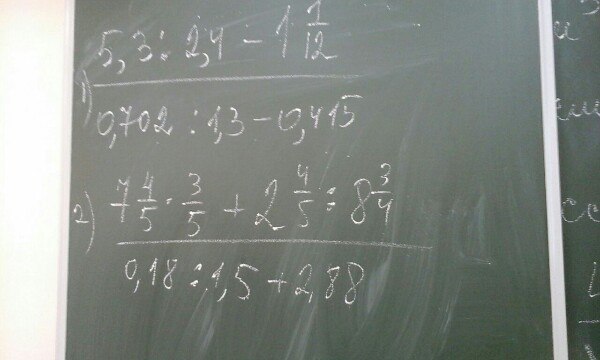 1) 5,3 : 2,4 − 1 1/12
0,702 : 1,3 − 0,415
2) 7 4/5 · 3/5 + 2 4/5 : 8 3/4
0,18 : 1,5 + 2,88